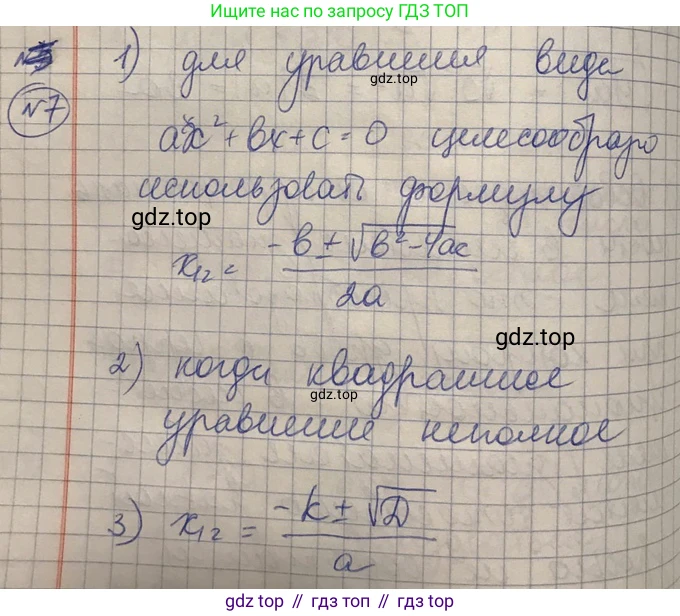 Ищите нас по запросу ГДЗ ТОП
1) для уравнения вида
gdz.top
№7
ax² + bx + c = 0 целесообразно
использовать формулу
gdz.top
x₁₂ = (-b ± √(b² - 4ac)) / 2a
gdz.top
2) когда квадратное
gdz.top
уравнение неполное
3) x₁₂ = (-k ± √D) / a
gdz.top // гдз.топ // гдз топ